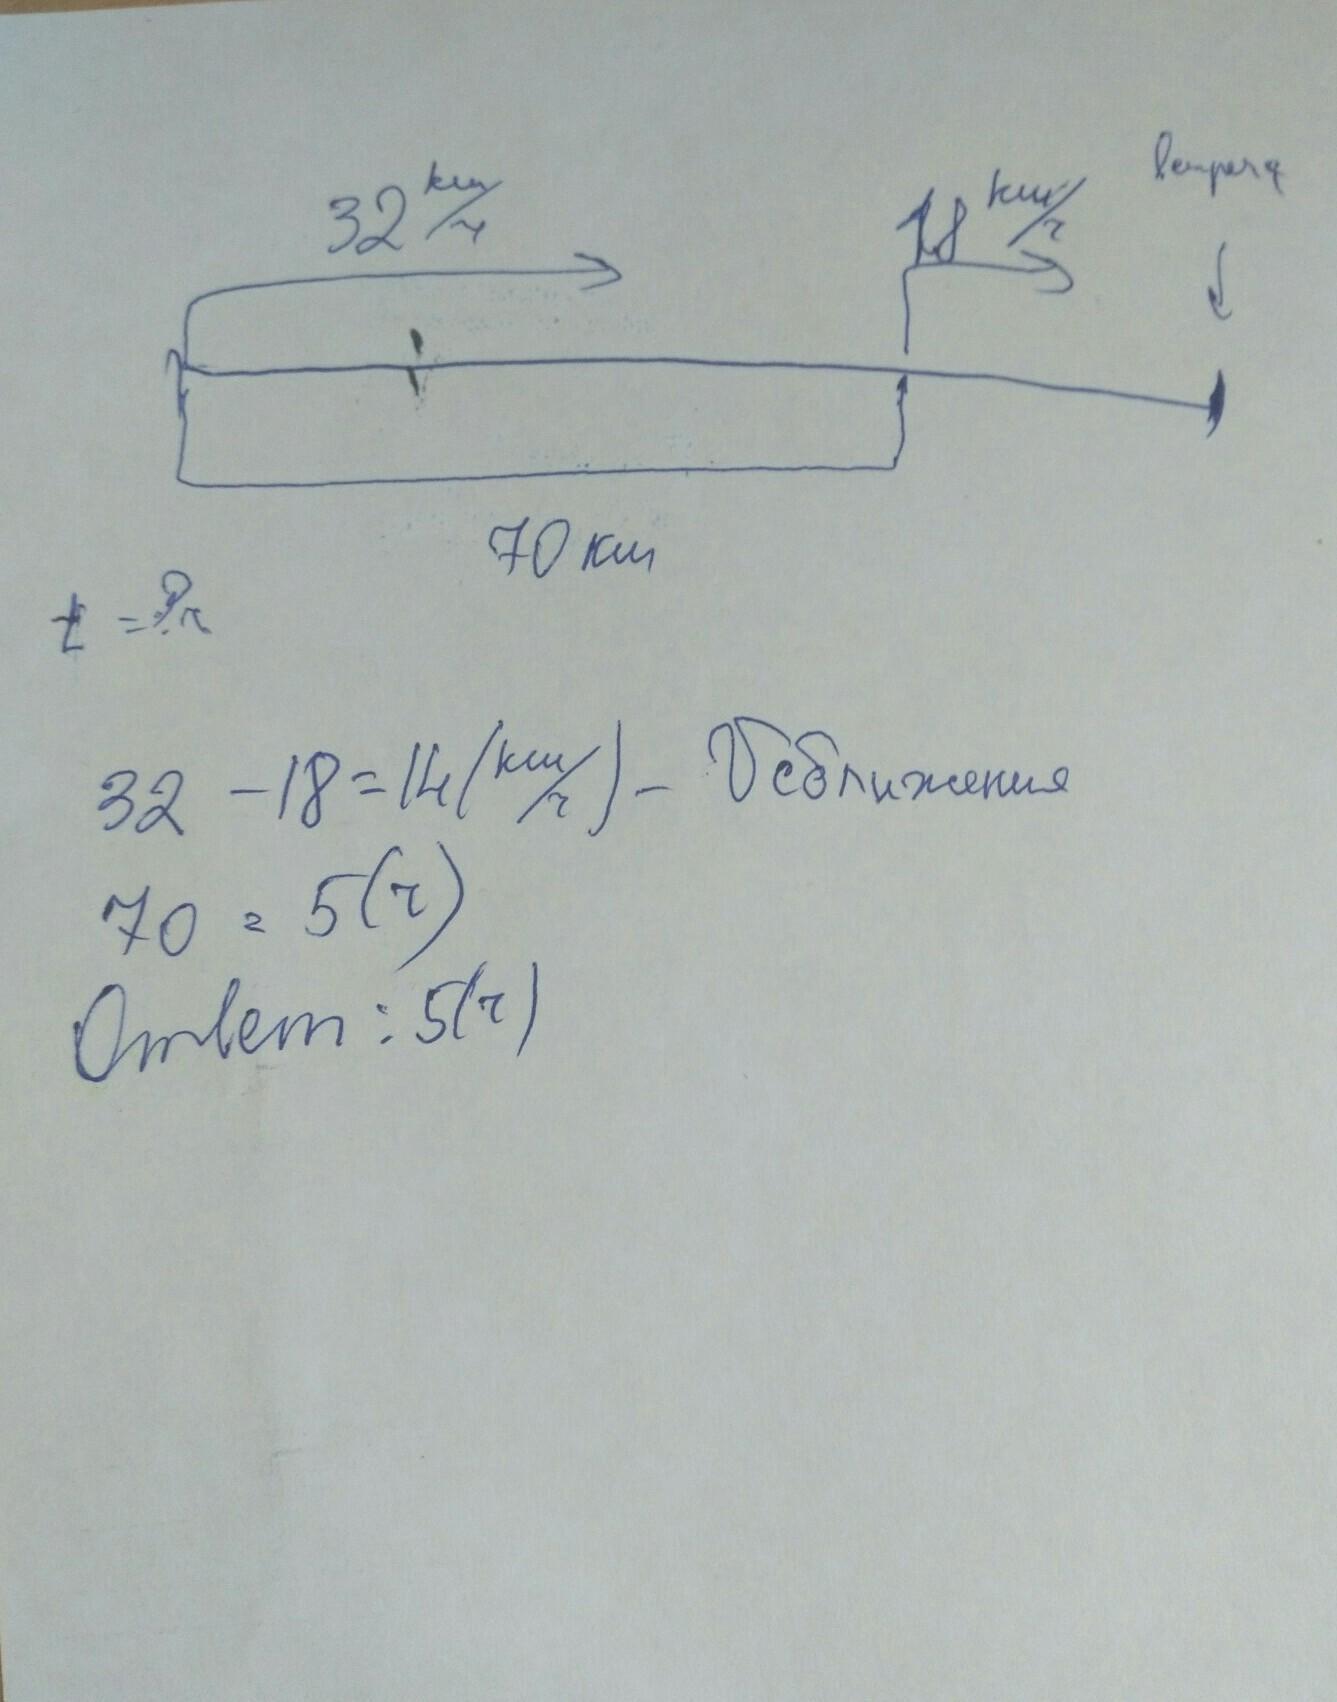 32 км/ч
18 км/ч
встреча
70 км
t = ? ч
32 - 18 = 14 (км/ч) - V сближения
70 = 5 (ч)
Ответ: 5 (ч)